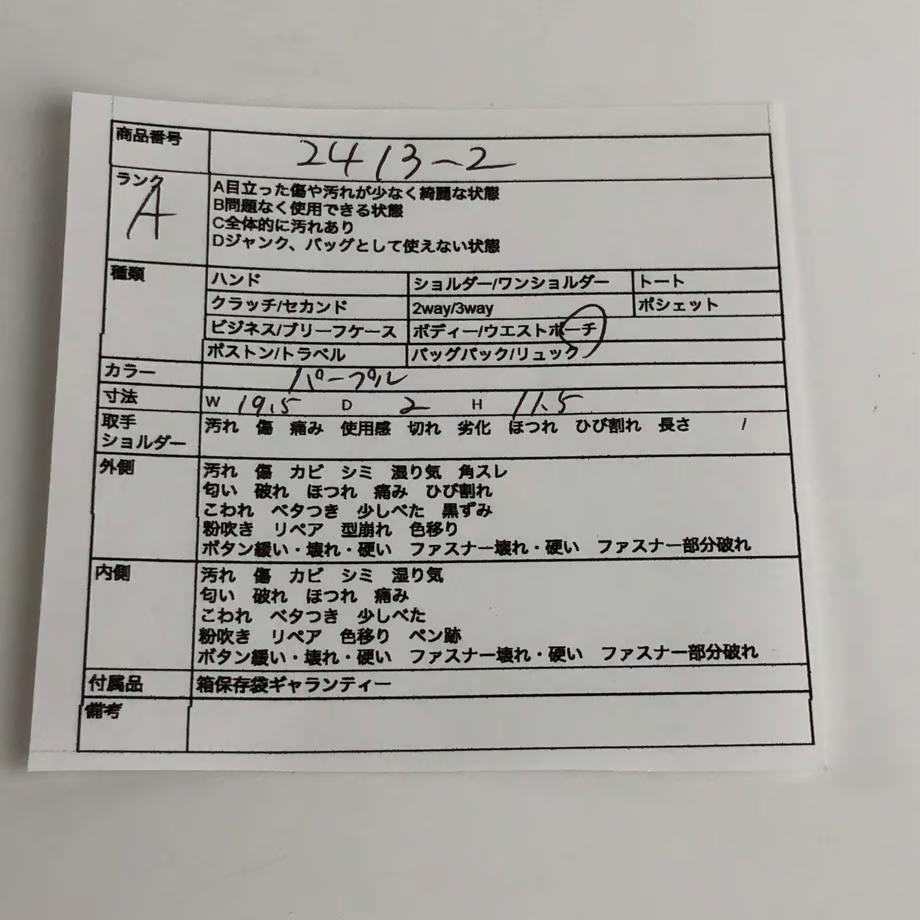 商品番号 2413-2
ランク A
A目立った傷や汚れが少なく綺麗な状態
B問題なく使用できる状態
C全体的に汚れあり
Dジャンク、バッグとして使えない状態
種類 ハンド ショルダー/ワンショルダー トート
クラッチ/セカンド 2way/3way ポシェット
ビジネス/ブリーフケース ボディー/ウエストポーチ
ボストン/トラベル バッグパック/リュック
カラー パープル
寸法 W 19.5 D 2 H 11.5
取手 汚れ 傷 痛み 使用感 切れ 劣化 ほつれ ひび割れ 長さ /
ショルダー
外側 汚れ 傷 カビ シミ 湿り気 角スレ
匂い 破れ ほつれ 痛み ひび割れ
こわれ ベタつき 少しべた 黒ずみ
粉吹き リペア 型崩れ 色移り
ボタン緩い・壊れ・硬い ファスナー壊れ・硬い ファスナー部分破れ
内側 汚れ 傷 カビ シミ 湿り気
匂い 破れ ほつれ 痛み
こわれ ベタつき 少しべた
粉吹き リペア 色移り ペン跡
ボタン緩い・壊れ・硬い ファスナー壊れ・硬い ファスナー部分破れ
付属品 箱保存袋ギャランティー
備考